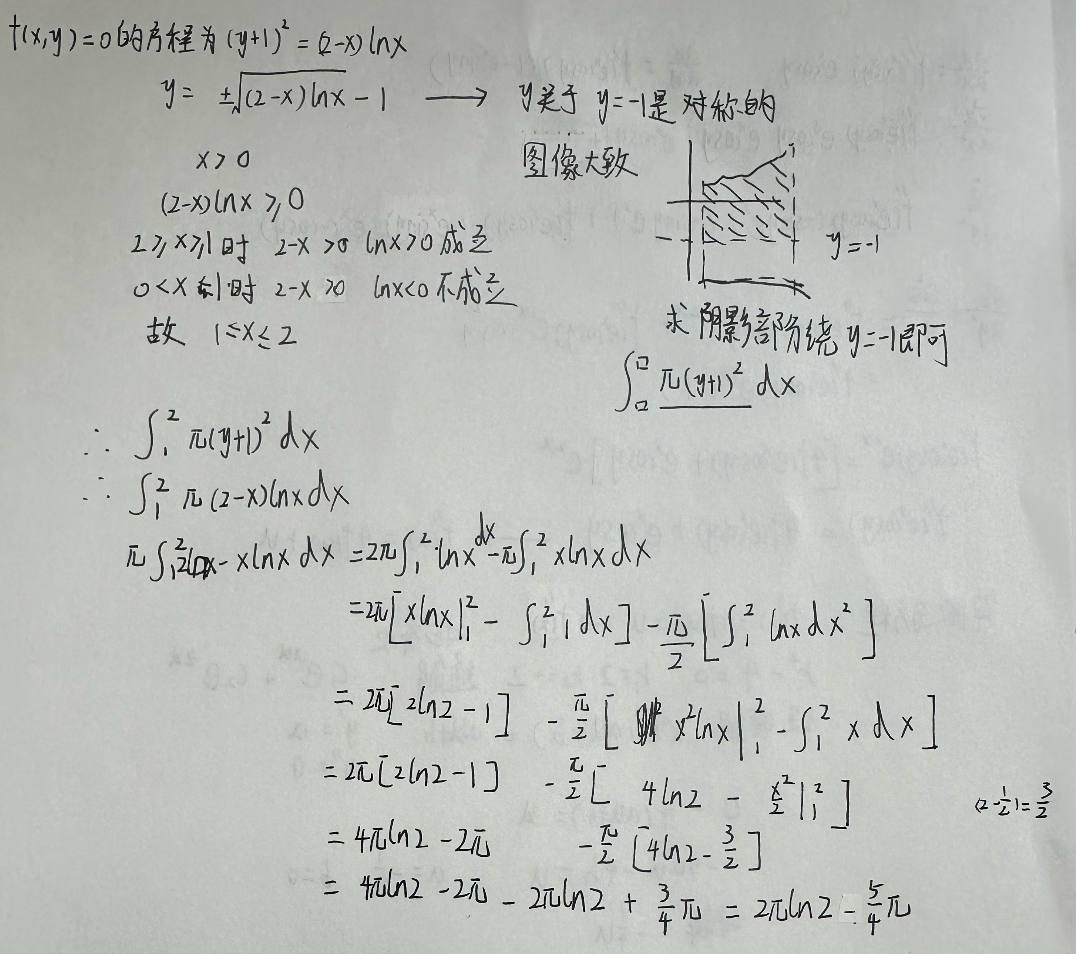 f(x,y)=0的方程为(y+1)²=(2-x)lnx
y= ±√(2-x)lnx -1 ⟶ y关于 y=-1是对称的
x>0
(2-x)lnx ≥0
2≥x≥1时 2-x>0 lnx>0成立
0<x≤1时 2-x>0 lnx<0不成立
故 1≤x≤2
图像大致
y=-1
求阴影部分绕y=-1即可
∫□^□ π(y+1)² dx
∴ ∫₁² π(y+1)² dx
∴ ∫₁² π(2-x)lnxdx
π∫₁² 2lnx-xlnx dx =2π∫₁² lnx dx -π∫₁² xlnx dx
=2π[xlnx|₁² - ∫₁² 1 dx] - π/2 [∫₁² lnx dx²]
= 2π[2ln2-1] - π/2 [x²lnx|₁² - ∫₁² x dx]
= 2π[2ln2-1] - π/2 [4ln2 - x²/2|₁²]
(2-1/2)=3/2
= 4πln2-2π - π/2 [4ln2-3/2]
= 4πln2-2π-2πln2+3/4π = 2πln2-5/4π